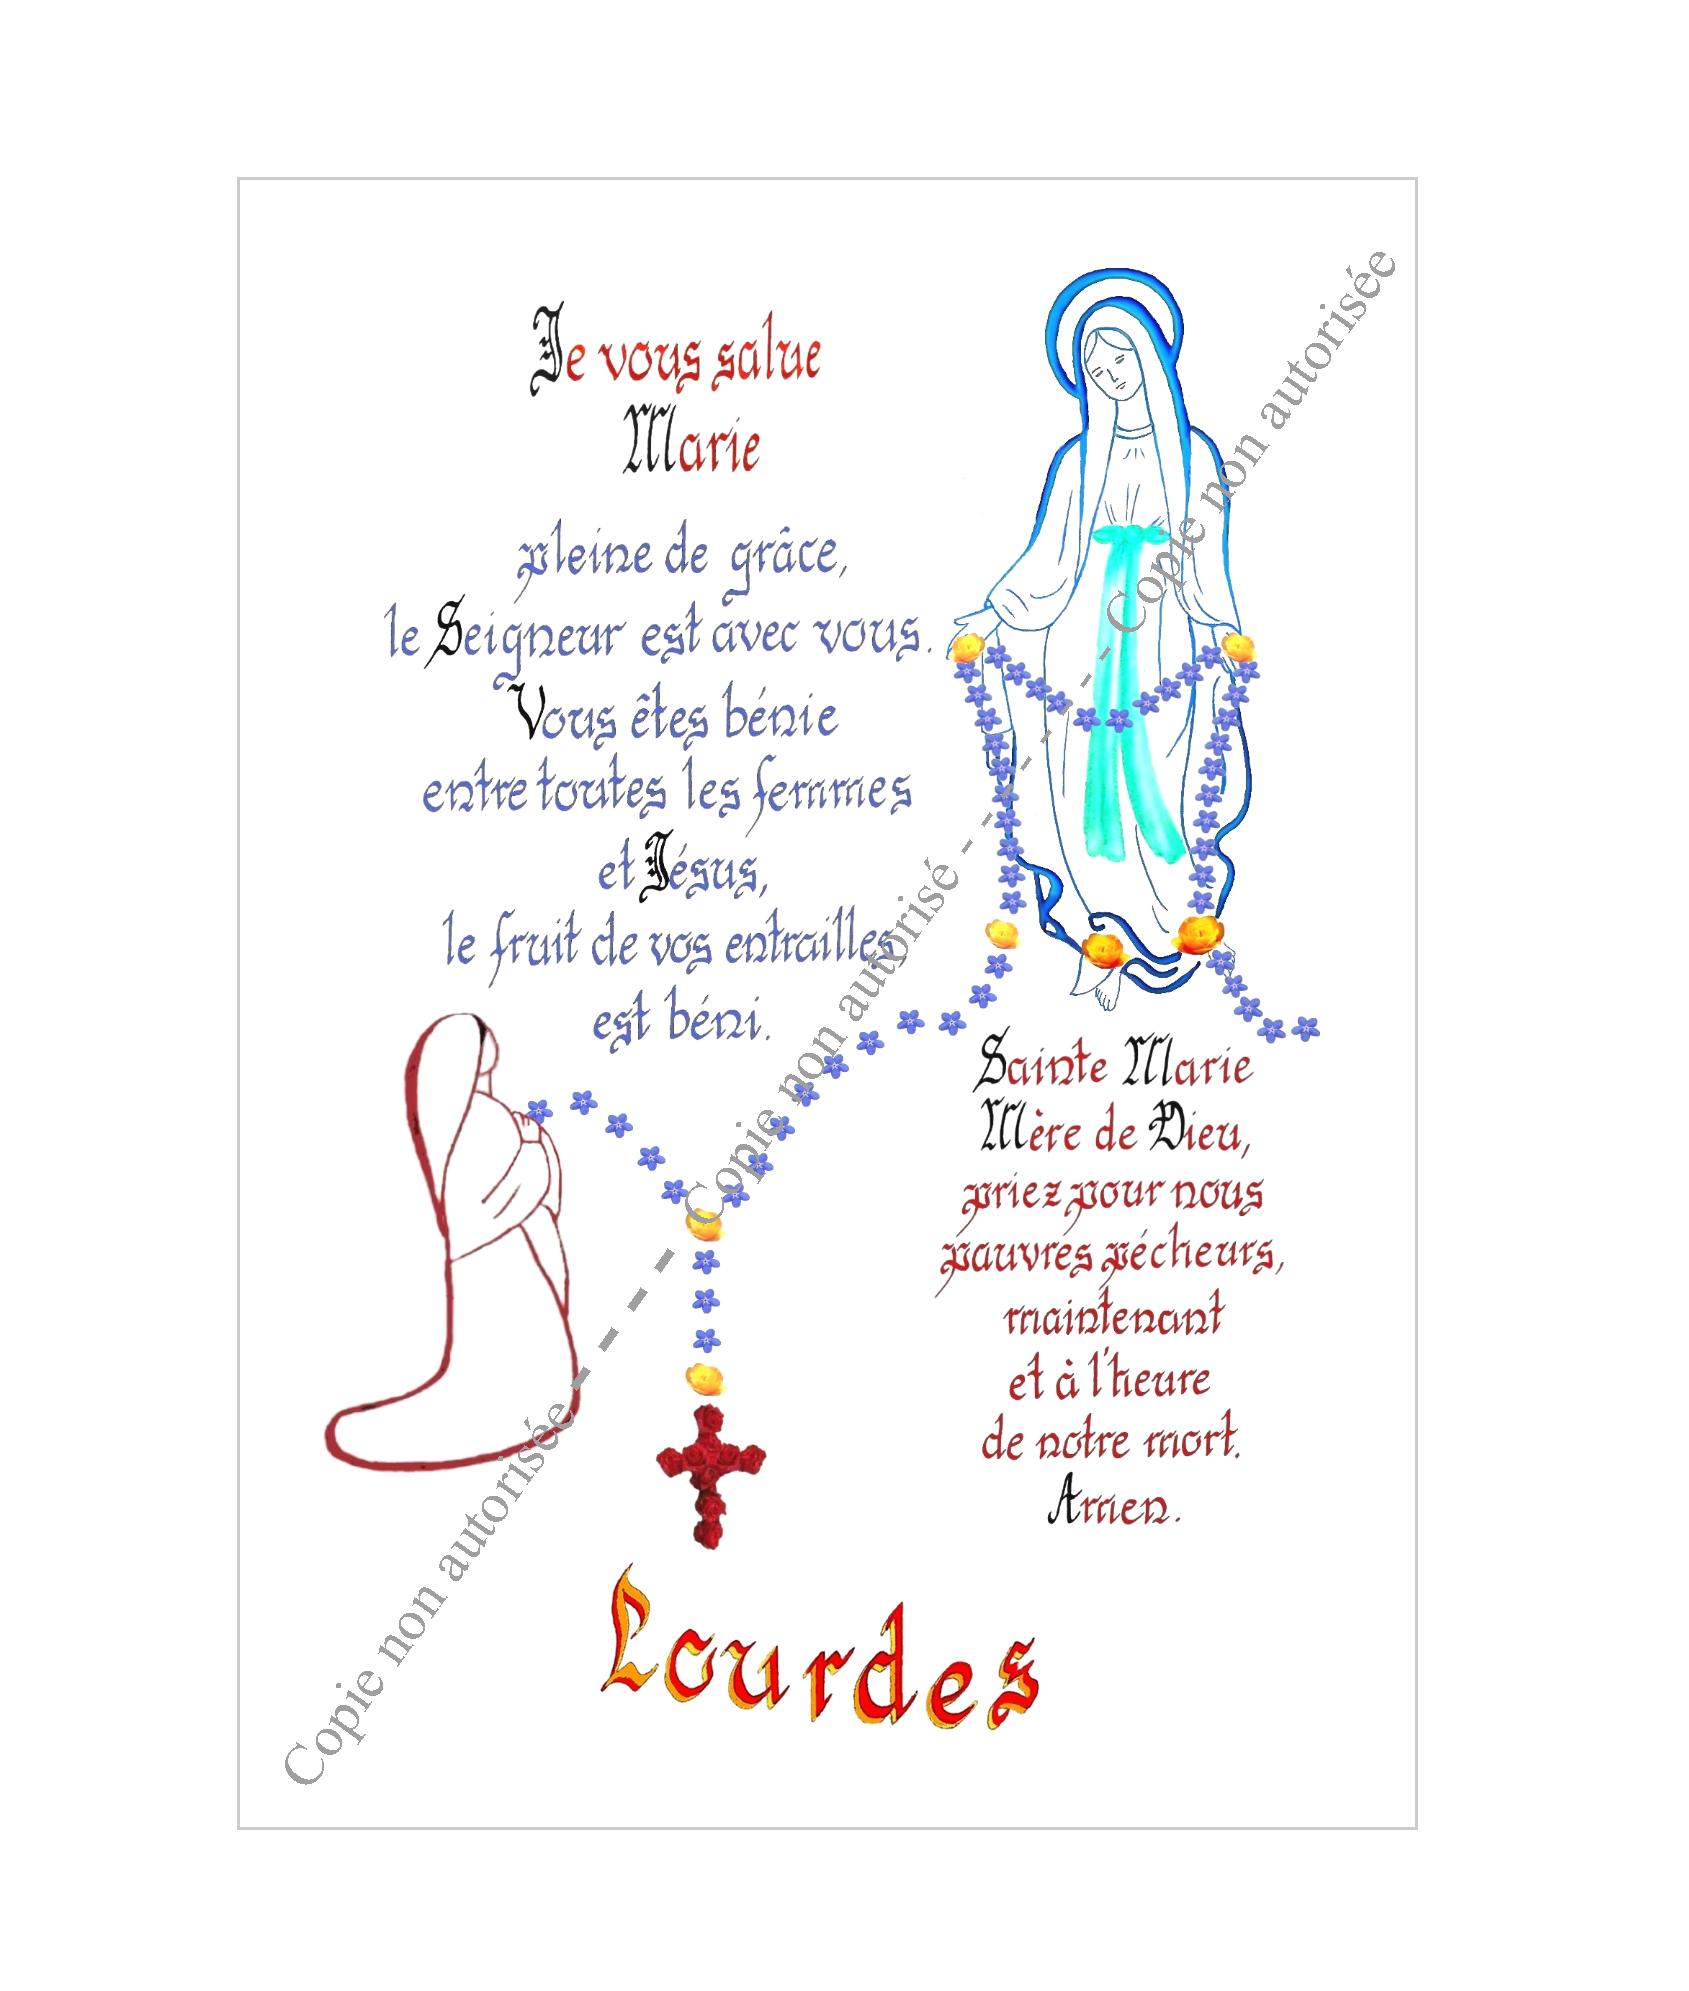 Je vous salue
Marie
pleine de grâce,
le Seigneur est avec vous.
Vous êtes bénie
entre toutes les femmes
et Jésus,
le fruit de vos entrailles
est béni.
Sainte Marie
Mère de Dieu,
priez pour nous
pauvres pécheurs,
maintenant
et à l'heure
de notre mort.
Amen.
Lourdes
Copie non autorisée - - - - Copie non autorisé - - - - - Copie non autorisée